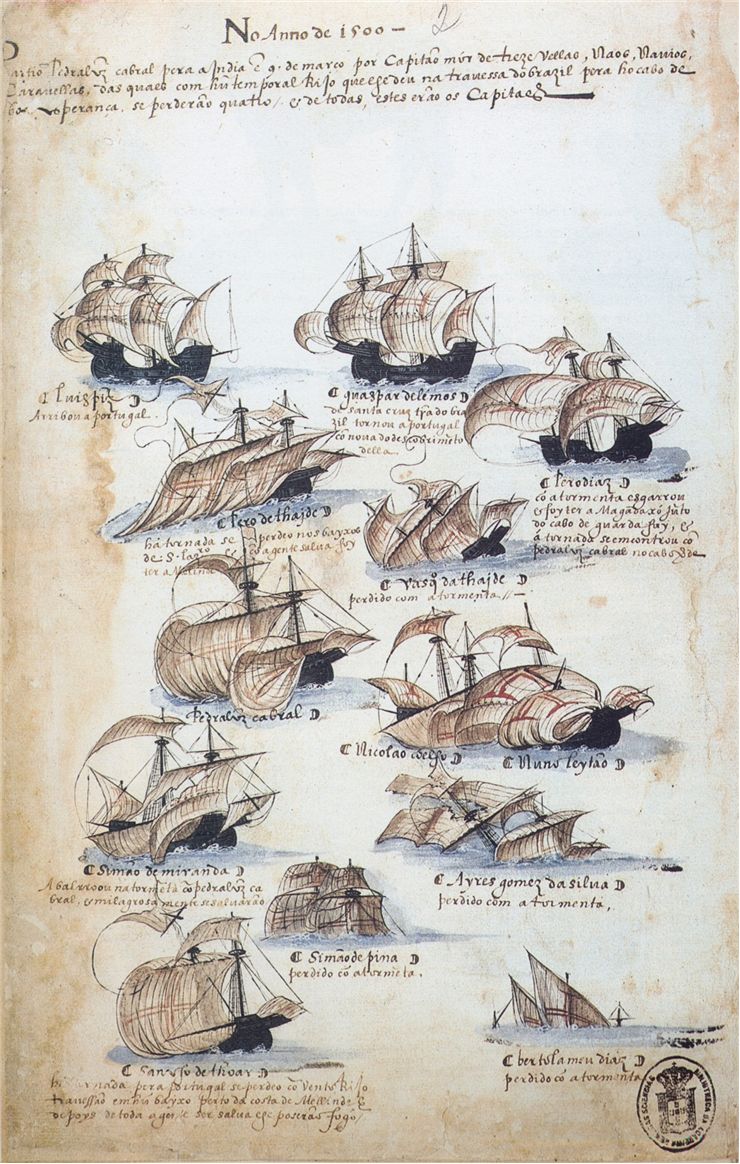 No Anno de 1500 —
2
Partio Pedralvz cabral pera a India é 9. de março por Capitão mór de treze Vellas, Naos, Navios,
Caravellas, das quaes com hũ temporal Rijo que lhe deu na travessa do brazil pera ho cabo de
boa esperança, se perderão quatro / & de todas, estes erão os Capitaés
Luis piz
Arribou a portugal.
guaspar de lemos
de santa cruz trã do bra
zil tornou a portugal
cõ nova do descobrimẽto
della.
Pero diaz
cõ a tormenta esgarrou
& foy ter a Magadaxo jũto
do cabo de guarda fuy, &
á tornada se emcontrou cõ
pedralvz cabral no cabo
Pero de thajde
há tornada se perdeo nos bayxos
de S. lazro & cõ a gente salva foy
ter a Melinde
Vasq da thajde
perdido com a tormenta //—
Pedralvz cabral
Nicolao coelho
Nuno leytão
Simão de miranda
Abalrroou na tormẽta cõ pedralvz ca
bral, & milagrosamente se salvarão
Ayres gomez da silva
perdido com a tormenta,
Simão de pina
perdido cõ a tormẽta.
de thovar
tornada pera portugal se perdeo cõ vento Rijo
travessão em hũ bayxo perto da costa de Mellinde &
depoys de toda a gente ser salva lhe poserão fogo
bertolameu diaz
perdido cõ a tormenta